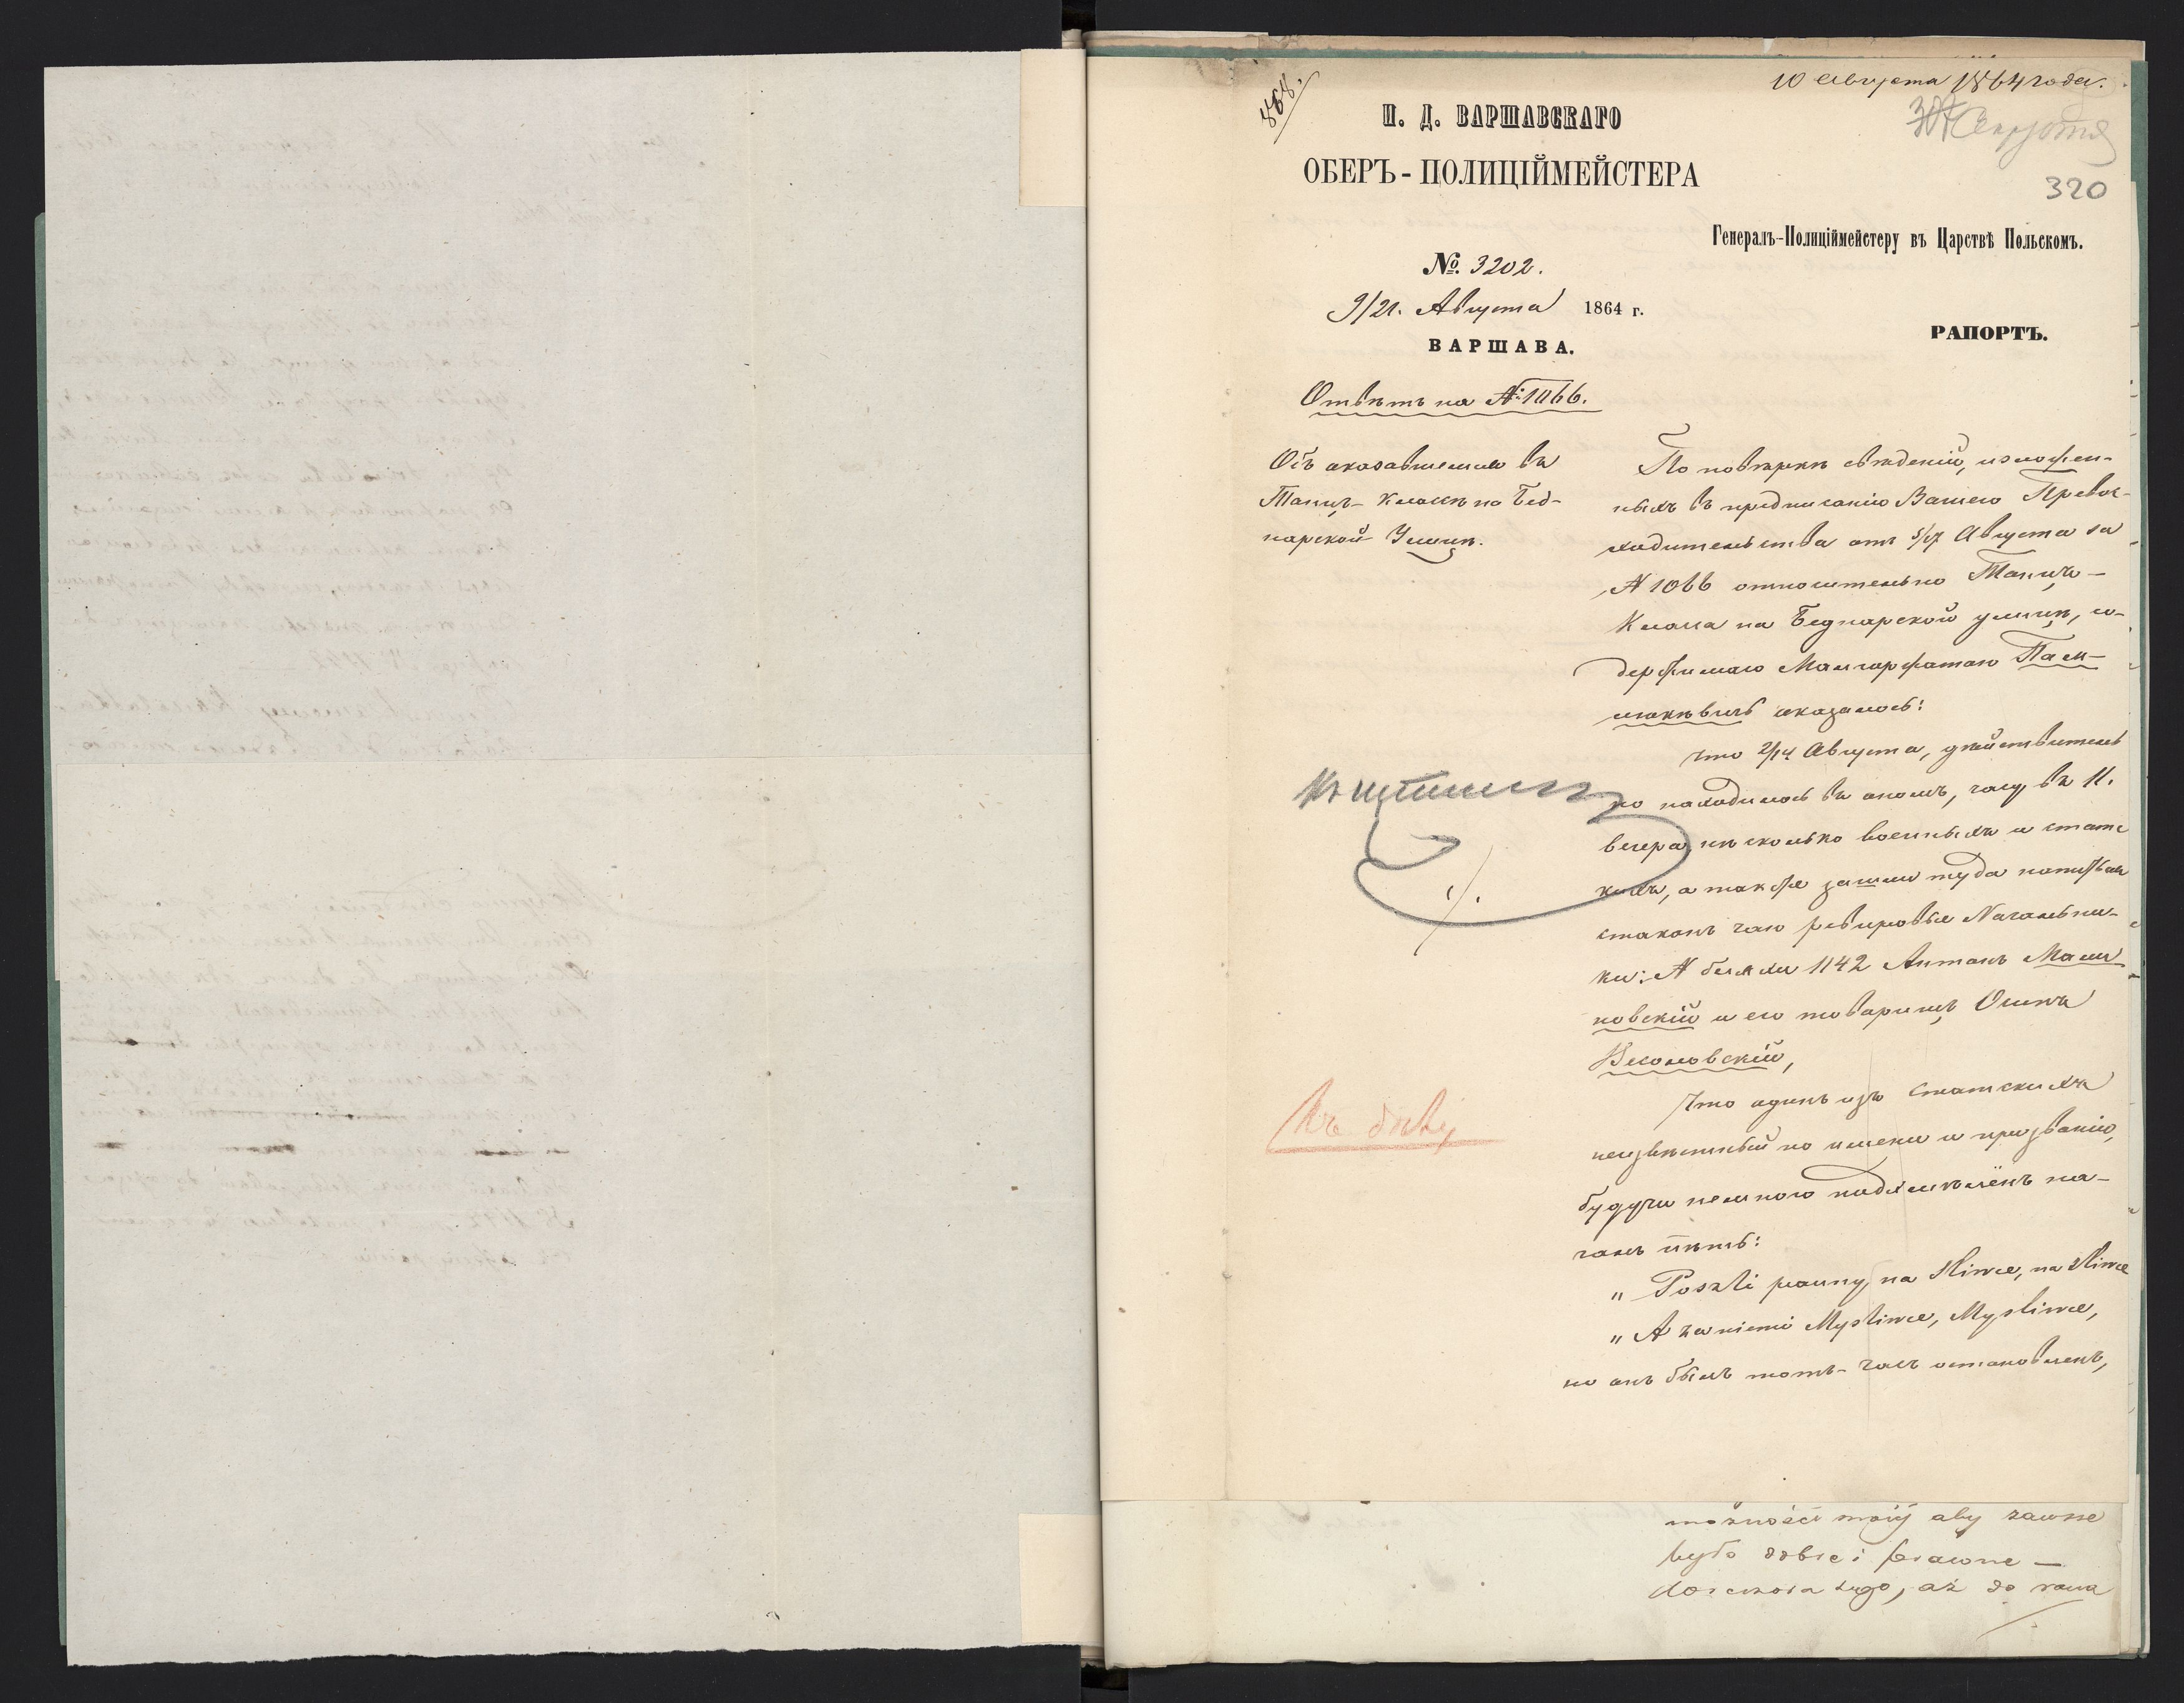 868.
10 Августа 1864 года.
И. Д. ВАРШАВСКАГО
ОБЕРЪ-ПОЛИЦІЙМЕЙСТЕРА
320
Генералъ-Полиціймейстеру въ Царствѣ Польскомъ.
№. 3202.
9/21. Августа 1864 г.
ВАРШАВА.
РАПОРТЪ.
Отвѣтъ на №: 1066.
Объ оказавшемся въ
Танцъ-Классѣ на Бед-
нарской Улицѣ.
По повѣркѣ свѣденій, изложен-
ныхъ въ предписаніи Вашего Превос-
ходительства отъ 5/17 Августа за
№ 1066 относительно Танцъ-
Класса на Беднарской улицѣ, со-
держимаго Маигоржатою
оказалось:
что 2/14 Августа, дѣйствитель
но находилось въ ономъ, часу въ 11.
вечера нѣсколько военныхъ и статс
кихъ, а также зашли туда выпить
стаканъ чаю ревировые Начальни-
ки: № бляхи 1142 Антонъ Мали
новскій и его товарищъ
Въ дѣлу
Что одинъ изъ статскихъ
неизвѣстный по имени и призванію,
будучи немного подхмѣлёнъ на-
чалъ пѣть:
" Poszli panny, na Sliwce, na Sliwce
" A za niemi Mysliwce, Mysliwce,
но онъ былъ тотъ-часъ остановленъ,
możności mojéj aby zawsze
było dobre i prawne —
aż do rana